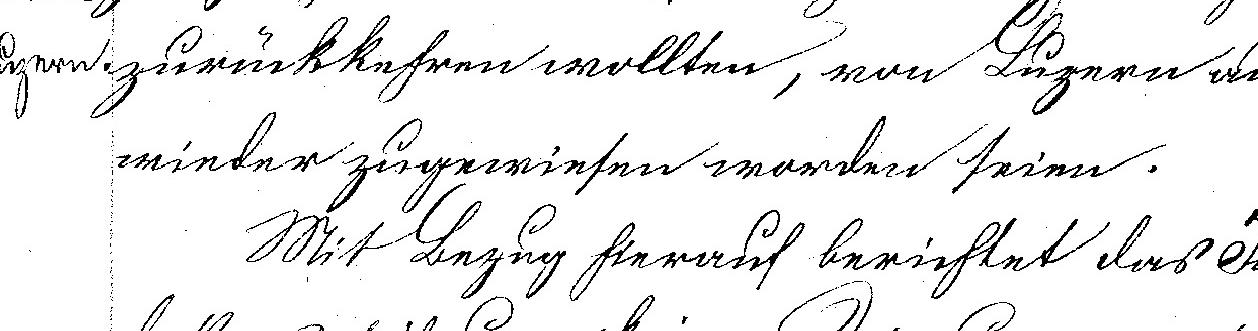 zurückkehren wollten, von Luzern
wieder zugewiesen worden seien.
Mit Bezug hierauf berichtet das